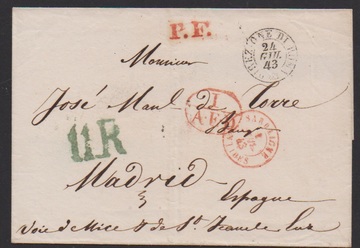 P.F.
24
GIU.
43
Monsieur
José Manl de Torre
L
A.E.D
SARDAIGNE
11R
Madrid
Espagne
Voie d'Nice & de St Jean de Luz